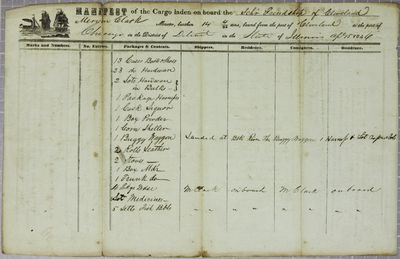 MANIFEST of the Cargo laden on board the Schr Friendship of Cleveland
Clark Master, burthen 14 Tons, bound from the port of Cleveland to the port of
Chicago in the District of Detroit in the State of Illinois
Marks and Numbers. No. Entries. Packages & Contents. Shippers. Residence. Consignees. Residence.
13 Cases Boots & Shoes
23 do Hardware
2 Lots Hardware
in Bulk
1 Package Harness
1 Cask Liquor
1 Box Powder
1 Corn Sheller
1 Buggy Waggon Landed at River The Buggy Waggon 1 Harness & Lot
2 Rolls Leather
2 Stoves
1 Box Mdz
1 Trunk do
Edge
M Clark on board M Clark on board
Lot Medicines
5 Setts
" " " "